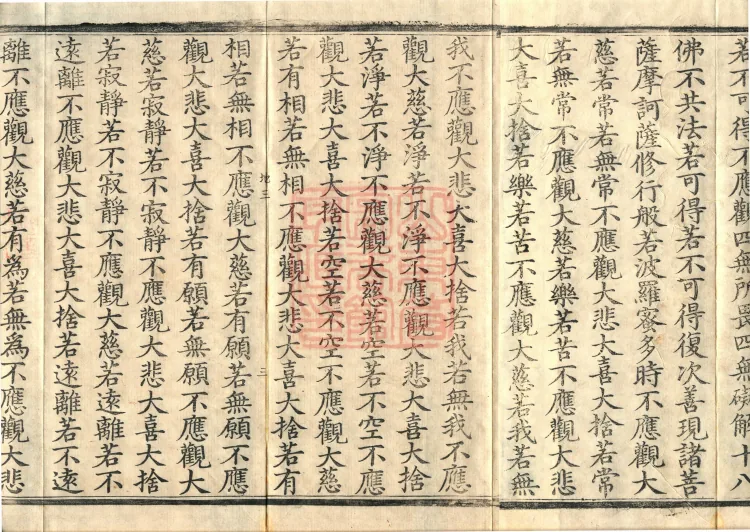 若不可得不應觀四無所畏四無礙解十八
佛不共法若可得若不可得復次善現諸菩
薩摩訶薩修行般若波羅蜜多時不應觀大
慈若常若無常不應觀大悲大喜大捨若常
若無常不應觀大慈若樂若苦不應觀大悲
大喜大捨若樂若苦不應觀大慈若我若無
我不應觀大悲大喜大捨若我若無我不應
觀大慈若淨若不淨不應觀大悲大喜大捨
若淨若不淨不應觀大慈若空若不空不應
觀大悲大喜大捨若空若不空不應觀大慈
若有相若無相不應觀大悲大喜大捨若有
地三 三
相若無相不應觀大慈若有願若無願不應
觀大悲大喜大捨若有願若無願不應觀大
慈若寂靜若不寂靜不應觀大悲大喜大捨
若寂靜若不寂靜不應觀大慈若遠離若不
遠離不應觀大悲大喜大捨若遠離若不遠
離不應觀大慈若有為若無為不應觀大悲